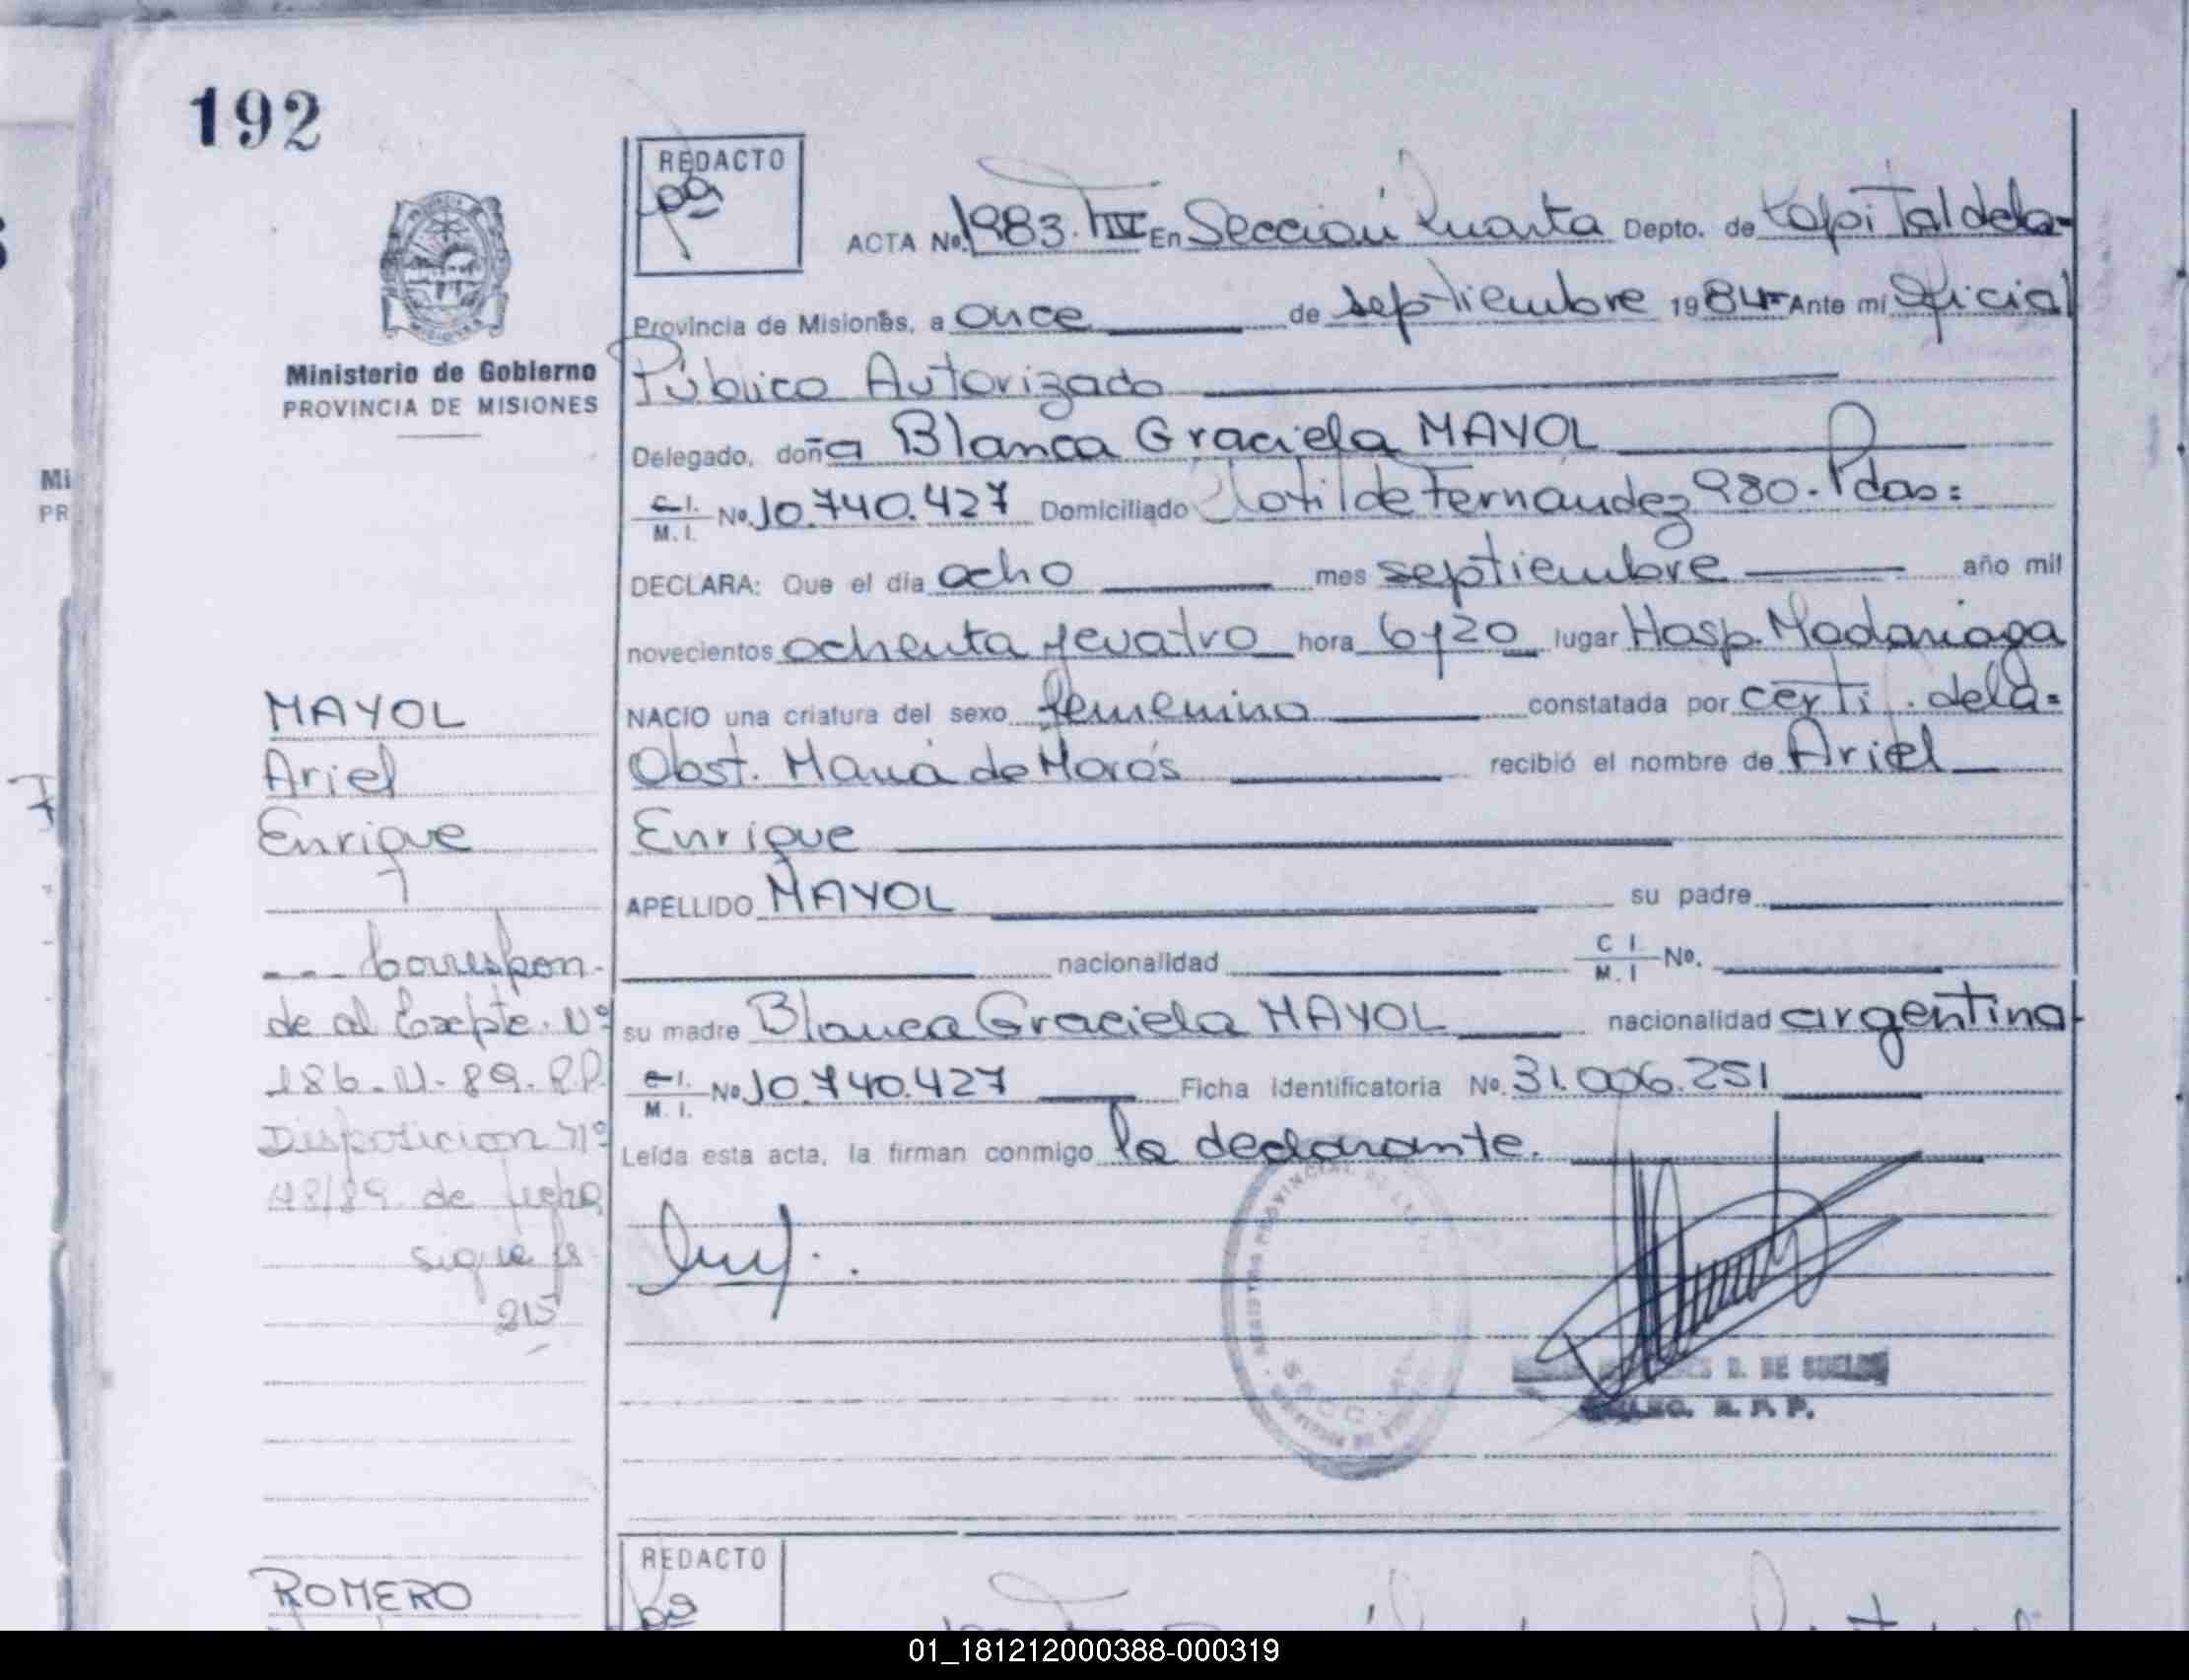 192
REDACTO
ACTA No. 1983. TIV En Sección Cuarta Depto. de Capital de la=
Provincia de Misiones, a once de septiembre 1984= Ante mi Oficial
Público Autorizado
Ministerio de Gobierno
PROVINCIA DE MISIONES
Delegado, doña Blanca Graciela MAYOL
C.I. M.I. No. 10.740.427 Domiciliado Clotilde Fernández 980. Pdas=
DECLARA: Que el día ocho mes septiembre año mil
novecientos ochenta y cuatro hora 6 y 20 lugar Hosp. Madariaga
NACIO una criatura del sexo femenino constatada por certi. de la=
Obst. María de Morós recibió el nombre de Ariel
Enrique
APELLIDO MAYOL su padre
nacionalidad C I. M. I No.
su madre Blanca Graciela MAYOL nacionalidad argentina
C.I. M. I. No 10.740.427 Ficha identificatoria No. 31.006.251
Leída esta acta, la firman conmigo la declarante.
MAYOL
Ariel
Enrique
--- Correspon-
de al Expte. Nº
186-M-89. R.P.
Disposicion Nº
48/89 de fecha
sigue fs
215
D. DE
R. P. P.
REDACTO
ROMERO
01_181212000388-000319